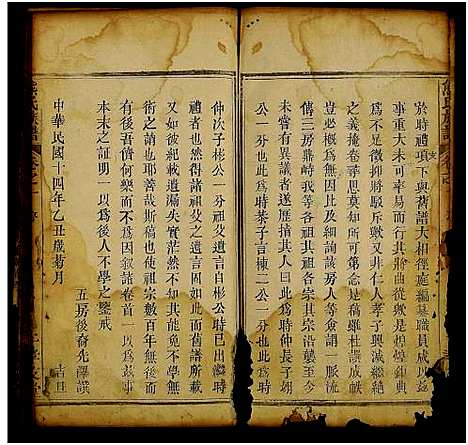 於時禮支項下與舊譜大相徑庭編纂職員成以茲
事重大未可率易而行其將曲從之歟是煌煌鉅典
足不徵抑將駁斥歟又非仁人孝子興滅繼絕
之義掩卷尋思莫知所可第念是稿雖杜譔成帙
豈必概為無因比及細詢該房人等僉謂一脈流
傳三房鼎峙我等各祖其祖各宗其宗沿襲至今
嘗有異議者遂歷指其人曰此為時仲長子翊
公一分也此為時棻子言棟二公一分也此為時
仲次子彬公一分祖父遺言自彬公時已出繼時
禮者也然得諸祖父之遺言固如此而舊譜所載
又如彼紀載遺漏失實茫然不知其能免不學無
術之誚也耶善哉斯稿也使祖宗數百年無後而
有後吾儕何樂而不為因敘諸卷首一以為茲事
本末之証明一以為後人不學之鑒戒
中華民國十四年乙丑歲菊月
五房後裔先澤譔
吉旦
熊氏族譜